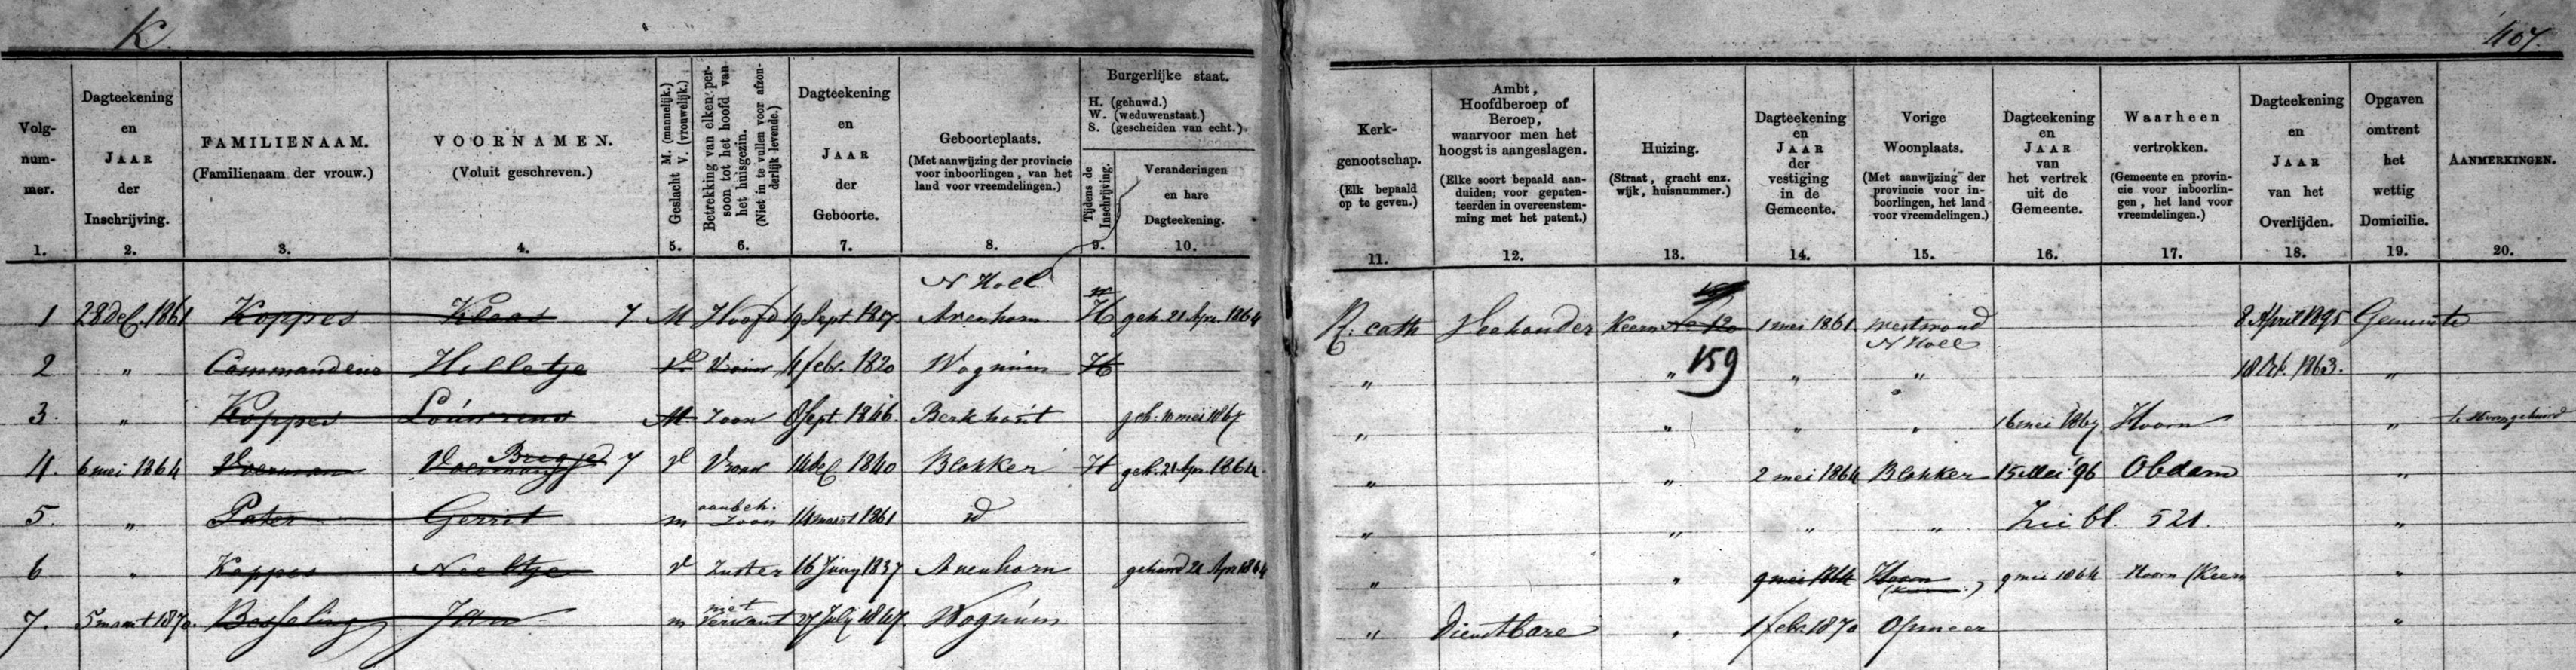 K.
407.
Volgnummer. 1.
Dagteekening en JAAR der Inschrijving. 2.
FAMILIENAAM. (Familienaam der vrouw.) 3.
VOORNAMEN. (Voluit geschreven.) 4.
Geslacht M. (mannelijk.) V. (vrouwelijk.) 5.
Betrekking van elken persoon tot het hoofd van het huisgezin. (Niet in te vullen voor afzonderlijk levende.) 6.
Dagteekening en JAAR der Geboorte. 7.
Geboorteplaats. (Met aanwijzing der provincie voor inboorlingen, van het land voor vreemdelingen.) 8.
Burgerlijke staat.
H. (gehuwd.)
W. (weduwenstaat.)
S. (gescheiden van echt.)
Tijdens de Inschrijving. 9.
Veranderingen en hare Dagteekening. 10.
Kerkgenootschap. (Elk bepaald op te geven.) 11.
Ambt, Hoofdberoep of Beroep, waarvoor men het hoogst is aangeslagen. (Elke soort bepaald aanduiden; voor gepatenteerden in overeenstemming met het patent.) 12.
Huizing. (Straat, gracht enz. wijk, huisnummer.) 13.
Dagteekening en JAAR der vestiging in de Gemeente. 14.
Vorige Woonplaats. (Met aanwijzing der provincie voor inboorlingen, het land voor vreemdelingen.) 15.
Dagteekening en JAAR van het vertrek uit de Gemeente. 16.
Waarheen vertrokken. (Gemeente en provincie voor inboorlingen, het land voor vreemdelingen.) 17.
Dagteekening en JAAR van het Overlijden. 18.
Opgaven omtrent het wettig Domicilie. 19.
AANMERKINGEN. 20.
N Holl
1 28 dec. 1861 Koppes Klaas 7 M Hoofd 9 Sept 1817. Avenhorn H geh. 21 Apr. 1864 R: cath Veehouder Keern No 120 1 mei 1861 Westwoud N Holl 8 April 1895 Gemeente
2 " Commandeur Hilletje V Vrouw 4 febr. 1820 Wognum H " " 159 " " 18 Oct. 1863. "
3. " Koppes Louwrens M Zoon 8 Sept. 1846. Berkhout geh: 10 mei 1867 " " " " 16 mei 1867 Hoorn "
4. 6 mei 1864 Voerman Bregje 7 V Vrouw 14 dec 1840 Blokker H geh. 21 Apr. 1864. " " 2 mei 1864 Blokker 15 Mei '96 Obdam "
5. " Pater Gerrit m aanbeh. Zoon 14 maart 1861 id " " " " Zie bl. 521. "
6 " Koppes Neeltje V Zuster 16 Juny 1837 Avenhorn gehuwd 21 Apr 1864 " " 9 mei 1864 Hoorn 9 mei 1864 Hoorn (Keern "
7. 5 maart 1870. Besseling Jan m niet Verwant 27 July 1847 Wognum " Dienstbare " 1 febr. 1870 Opmeer "